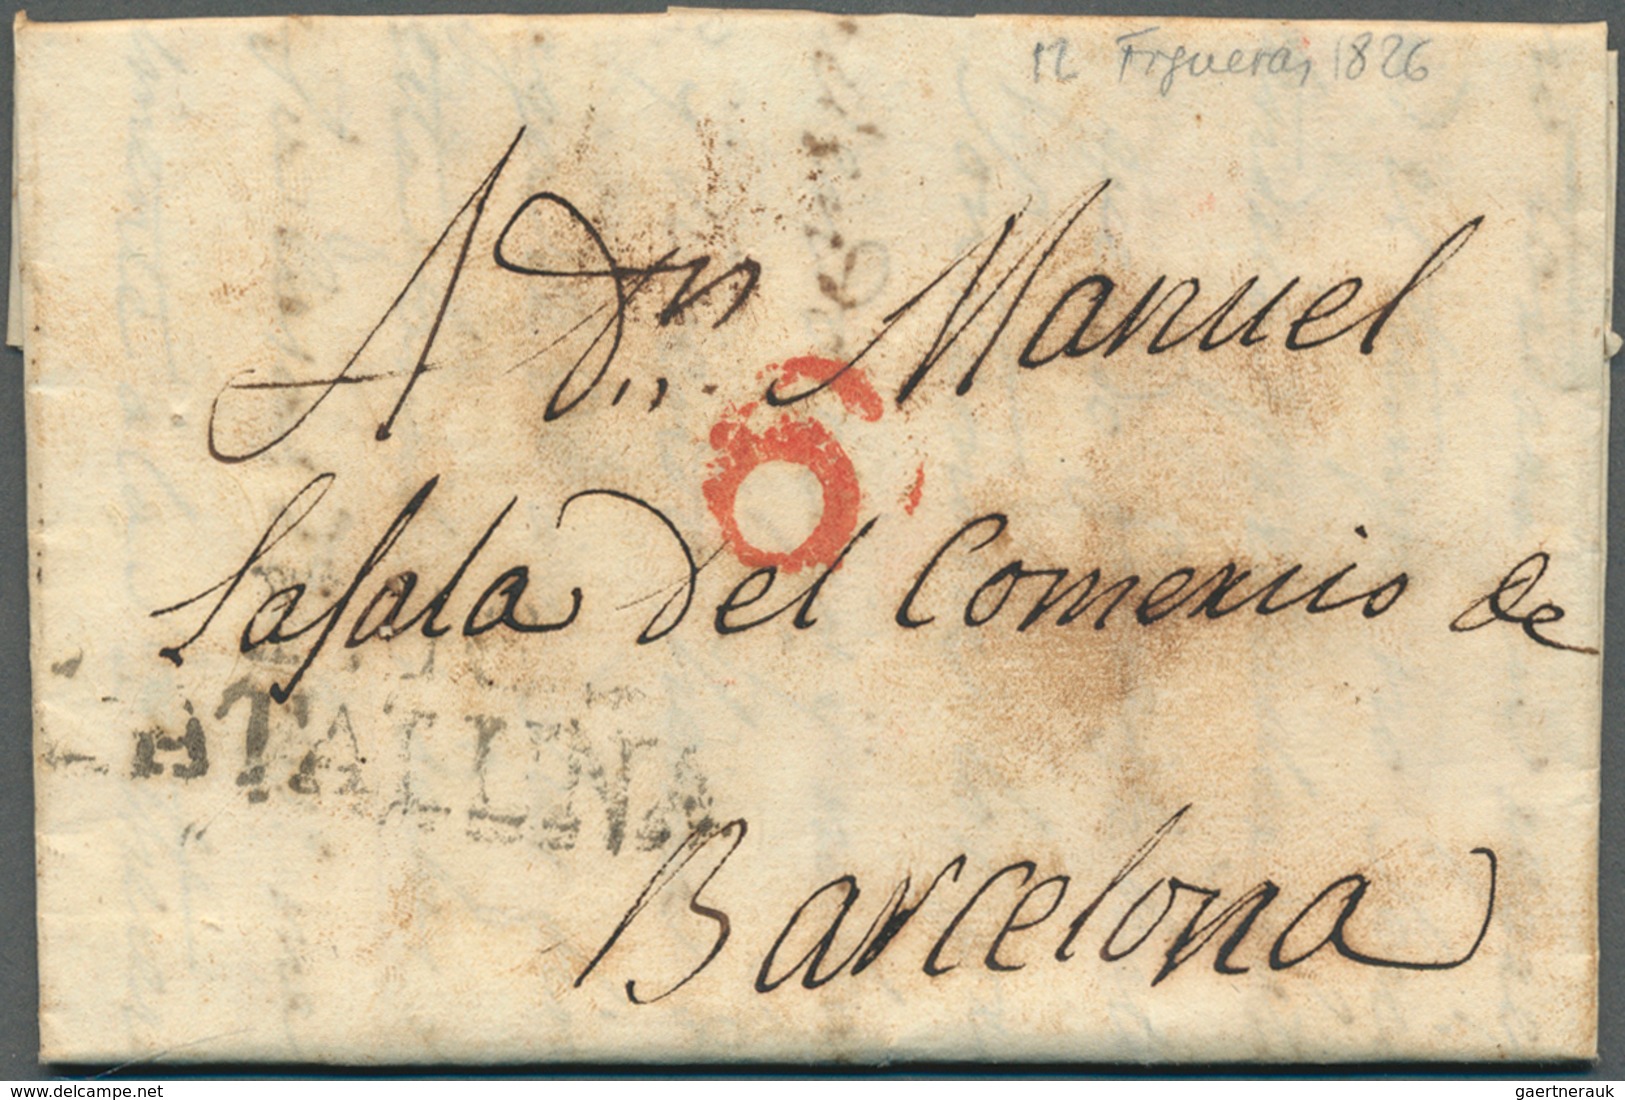 12 Figueras 1826
A Dn. Manuel
6
Lasala del Comercio de
ATALUNA
Barcelona
www.delcampe.net
gaertnerauk